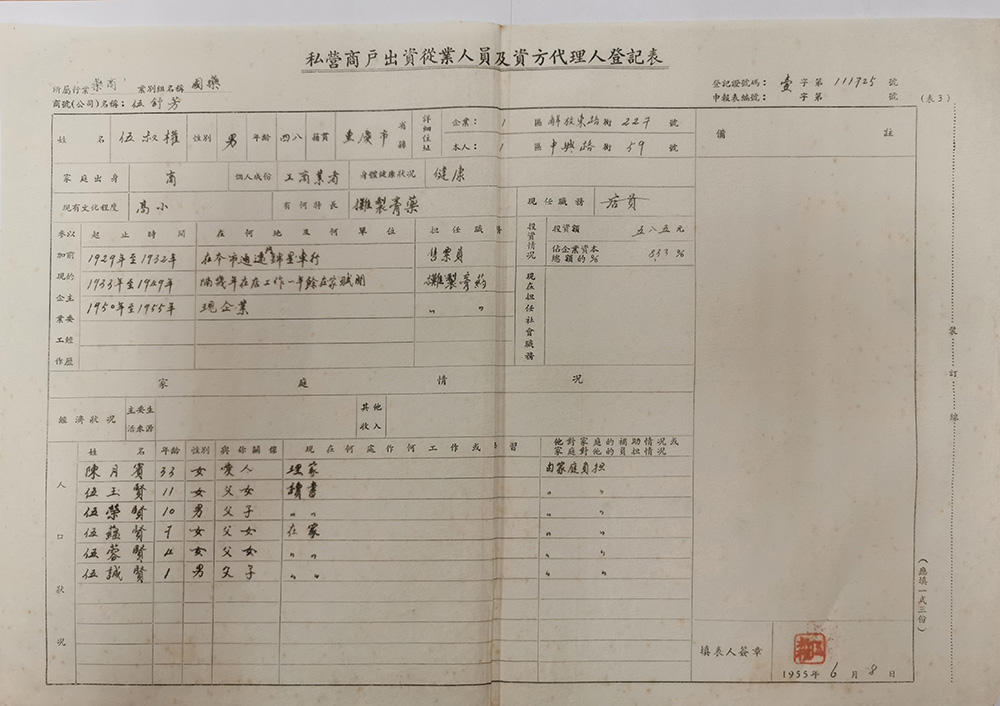 私營商戶出資從業人員及資方代理人登記表
所屬行業 藥商 業別組名稱 國藥 登記證號碼： 壹 字第 111725 號
商號(公司)名稱： 伍舒芳 申報表編號： 字第 號 (表3)
姓名 伍叔權 性別 男 年齡 四八 籍貫 重慶市 省縣 詳細住址 企業： 1 區 解放東路 街 227 號 備註
本人： 1 區 中興路 街 59 號
家庭出身 商 個人成份 工商業者 身體健康狀況 健康
現有文化程度 高小 有何特長 攤製膏藥 現任職務 店員
參加現企業工作以前的主要經歷 起止時間 在何地及何單位 担任職務 投資情况 投資額 五八五元
1929年至1932年 在本市通遠門錦星車行 售票員 佔企業資本總額的% 8.33%
1933年至1949年 隔幾年在店工作一年餘在家賦閒 攤製膏药 現在担任社會職務
1950年至1955年 現企業 〃 〃
家庭情况
經濟狀况 主要生活來源 其他收入
人口狀况 姓名 年齡 性別 與你關係 現在何處作何工作或學習 他對家庭的補助情况或家庭對他的負担情况
陳月賓 33 女 愛人 理家 由家庭負担
伍玉賢 11 女 父女 讀書 〃 〃
伍榮賢 10 男 父子 〃 〃 〃 〃
伍蘊賢 7 女 父女 在家 〃 〃
伍蓉賢 4 女 父女 〃 〃 〃 〃
伍誠賢 1 男 父子 〃 〃 〃 〃
裝訂線
(應填一式三份)
填表人簽章
1955年 6 月 8 日